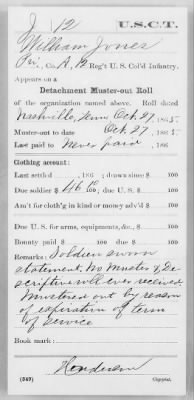 J 12 U.S.C.T.
William Jones
Pvt, Co. A, 12 Reg't U. S. Col'd Infantry.
Appears on a
Detachment Muster-out Roll
of the organization named above. Roll dated
Nashville, Tenn Oct. 27, 1865.
Muster-out to date Oct. 27, 1865.
Last paid to Never paid, 186 .
Clothing account:
Last settled , 186 ; drawn since $ 100
Due soldier $ 46 100; due U. S. $ 100
Am't for cloth'g in kind or money adv'd $ 100
Due U. S. for arms, equipments, &c., $ 100
Bounty paid $ 100; due $ 100
Remarks: Soldiers sworn
statement. No Muster & De-
scriptive roll ever received.
Mustered out by reason
of expiration of term
of service
Book mark:
Henderson
(349) Copyist.